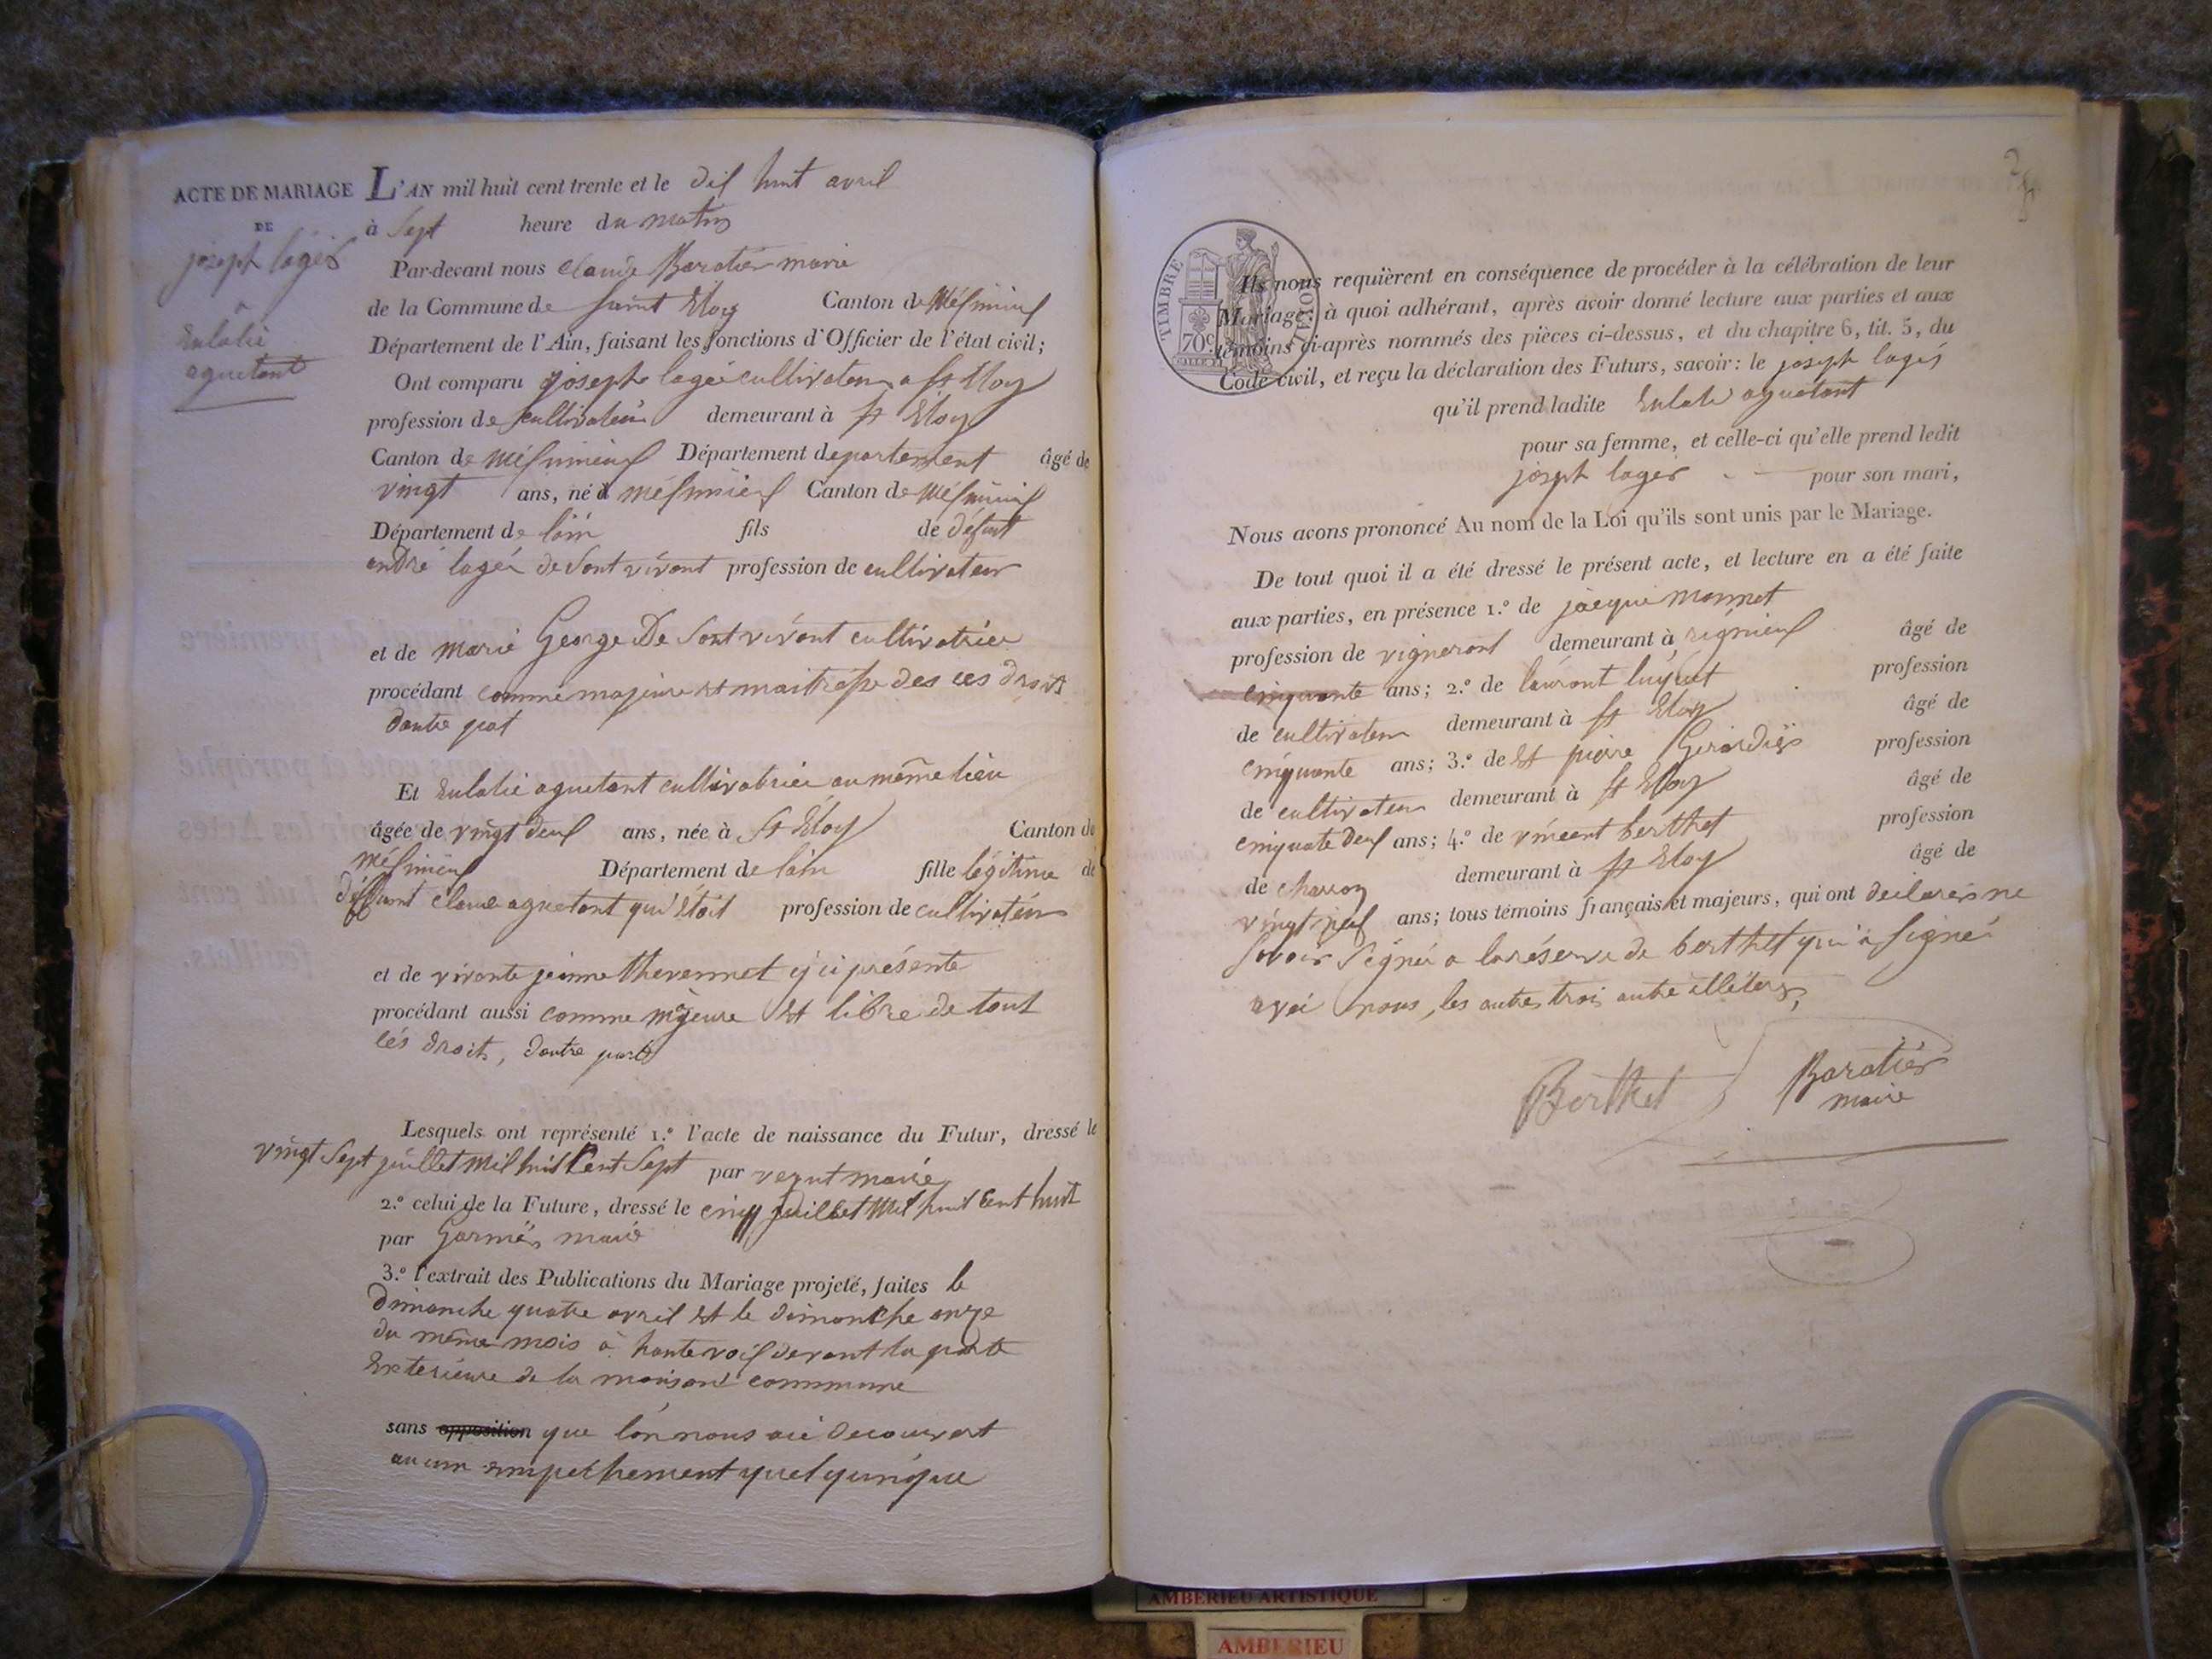 ACTE DE MARIAGE
DE
joseph lagér
a
Eulalie
aguetant
L'AN mil huit cent trente et le dix huit avril
à sept heure du matin
Par-devant nous claude Baratier maire
de la Commune de saint Eloy Canton de Méximieux
Département de l'Ain, faisant les fonctions d'Officier de l'état civil;
Ont comparu joseph lagér cultivateur a st Eloy
profession de cultivateur demeurant à st Eloy
Canton de Méximieux Département departement âgé de
vingt ans, né à méximieux Canton de Méximieux
Département de lain fils de défunt
andré lagér de sont vivant profession de cultivateur
et de marie George De sont vivant cultivatrice
procédant comme majeure et maitresse des ces droits
dautre part
Et Eulalie aguetant cultivatrice au même lieu
âgée de vingt deux ans, née à st Eloy Canton de
méximieux Département de lain fille légitime de
déffunt claude aguetant qui étoit profession de cultivateur
et de vivante jeanne thevennet ici présente
procédant aussi comme majeure et libre de tout
cés droits, dautre part
Lesquels ont représenté 1.º l'acte de naissance du Futur, dressé le
vingt sept juillet mil huit Cent sept par vezut maire
2.º celui de la Future, dressé le cinq juillet mil huit Cent huit
par Garnier maire
3.º l'extrait des Publications du Mariage projeté, faites le
dimanche quatre avril et le dimanche onze
du même mois à haute voix devant la porte
Exterieure de la maison commune
sans opposition que l'on nous aie decouvert
aucun empechement quelqunque
TIMBRE ROYAL
70c
Ils nous requièrent en conséquence de procéder à la célébration de leur
Mariage; à quoi adhérant, après avoir donné lecture aux parties et aux
témoins ci-après nommés des pièces ci-dessus, et du chapitre 6, tit. 5, du
Code civil, et reçu la déclaration des Futurs, savoir: le joseph lagér
qu'il prend ladite Eulalie aguetant
pour sa femme, et celle-ci qu'elle prend ledit
joseph lager pour son mari,
Nous avons prononcé Au nom de la Loi qu'ils sont unis par le Mariage.
De tout quoi il a été dressé le présent acte, et lecture en a été faite
aux parties, en présence 1.º de jacque monnet
profession de vigneront demeurant à rignieux âgé de
cinquante ans; 2.º de laurant luquet profession
de cultivateur demeurant à st Eloy âgé de
cinquante ans; 3.º de et pierre Girardin profession
de cultivateur demeurant à st Eloy âgé de
cinquate deux ans; 4.º de vincent berthet profession
de charron demeurant à st Eloy âgé de
vingt neuf ans; tous témoins français et majeurs, qui ont declarés ne
savoir signer a la réserve de berthet qui a signé
avec nous, les autres trois
Berthet Baratier
maire
AMBERIEU ARTISTIQUE
AMBERIEU